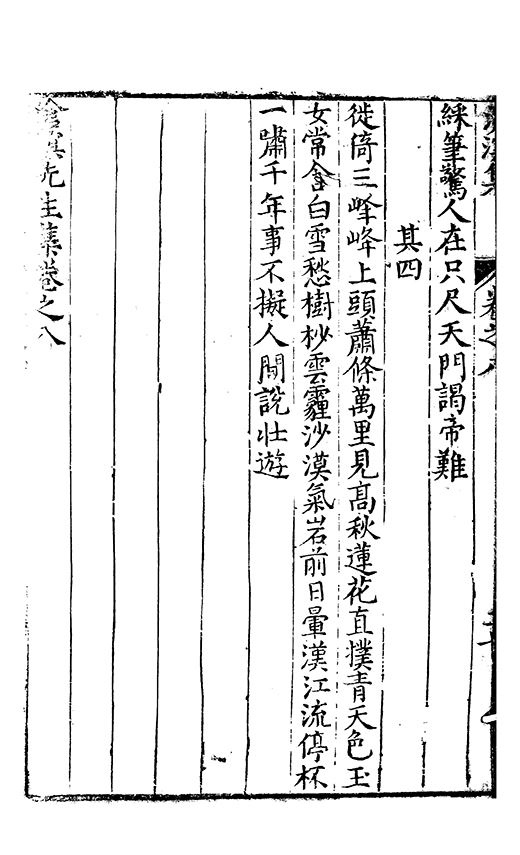 綵筆驚人在只尺天門謁帝難
其四
徙倚三峰峰上頭蕭條萬里見高秋蓮花直撲青天色玉
女常含白雪愁樹杪雲霾沙漠氣岩前日暈漢江流停杯
一嘯千年事不擬人間說壯遊
滄溟先生集卷之八